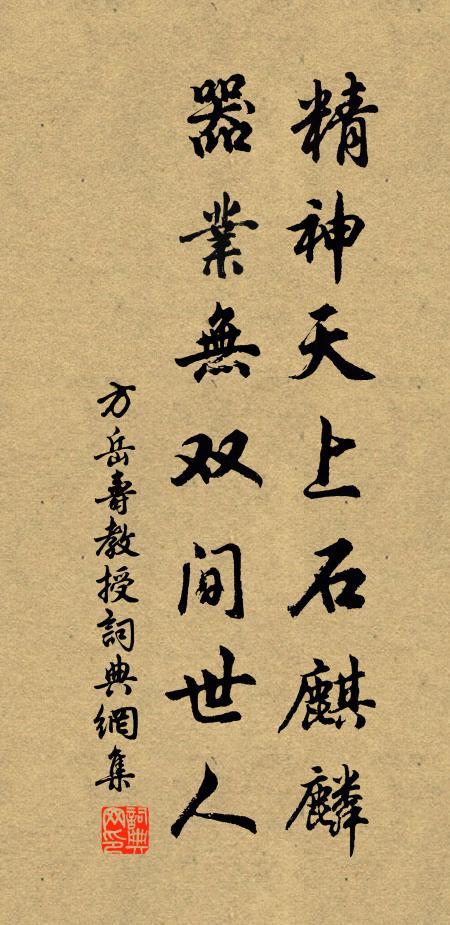 精神天上石麒麟
器業無双间世人
方岳壽教授詞典網集
詞典
网印